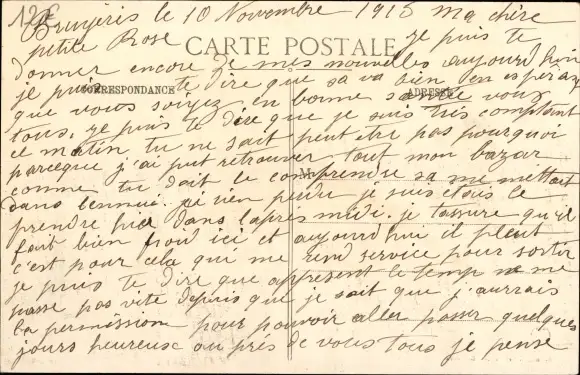 Bruyèris le 10 Novembre 1915 ma chère
petite Rose je puis te
CARTE POSTALE
donner encore de mes nouvelles aujourd'hui
je puis te dire que sa va bien en espérant
CORRESPONDANCE
ADRESSE
que vous soiyez en bonne santé vous
tous. je puis te dire que je suis très comptant
ce matin tu ne sait peut être pas pourquoi
parceque j'ai put retrouver tout mon bazar
comme tu doit le comprendre sa me mettait
dans l'ennui. je rien perdu je suis
prendre hier dans l'après midi. je t'assure qu'il
fait bien froid ici et aujourd'hui il pleut
c'est pour cela qui me rend service pour sortir
je puis te dire que appresent le temp ne me
passe pas vite depuis que je sait que j'aurrais
la permission pour pouvoir aller passer quelques
jours heureuse au près de vous tous je pense